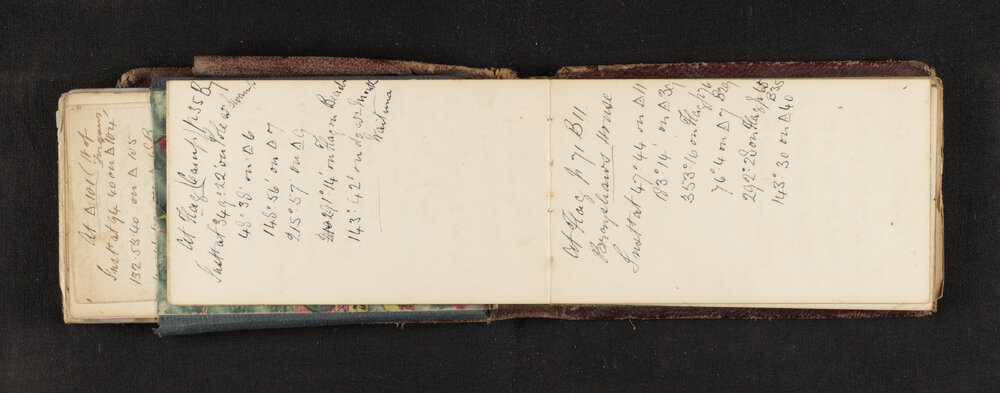 At Δ 101 (W of
Inst at 94.40 on Δ 104
132.53.40 on Δ 105
At Flag (Camp) p 35 B
Inst at 349°22' on Pole w of
48°38' on Δ 6
148°56' on Δ 7
215°57' on Δ 9
291°14' on Flag on Beach
143°42' on
At Flag p 71 B11
Bragshaws House
Inst at 47°44 on Δ 11
183°14' on Δ 39
353°16 on Flag p 76
76°4 on Δ 7 B29
292°23 on Flag p 45
B35
143°30 on Δ 40